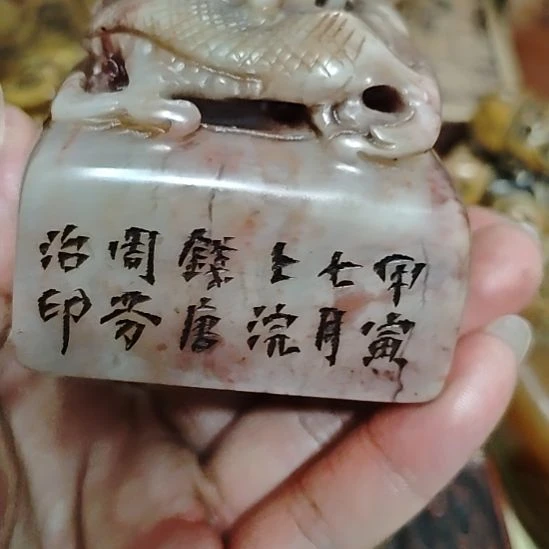 甲寅
七月
上浣
錢唐
周芬
治印